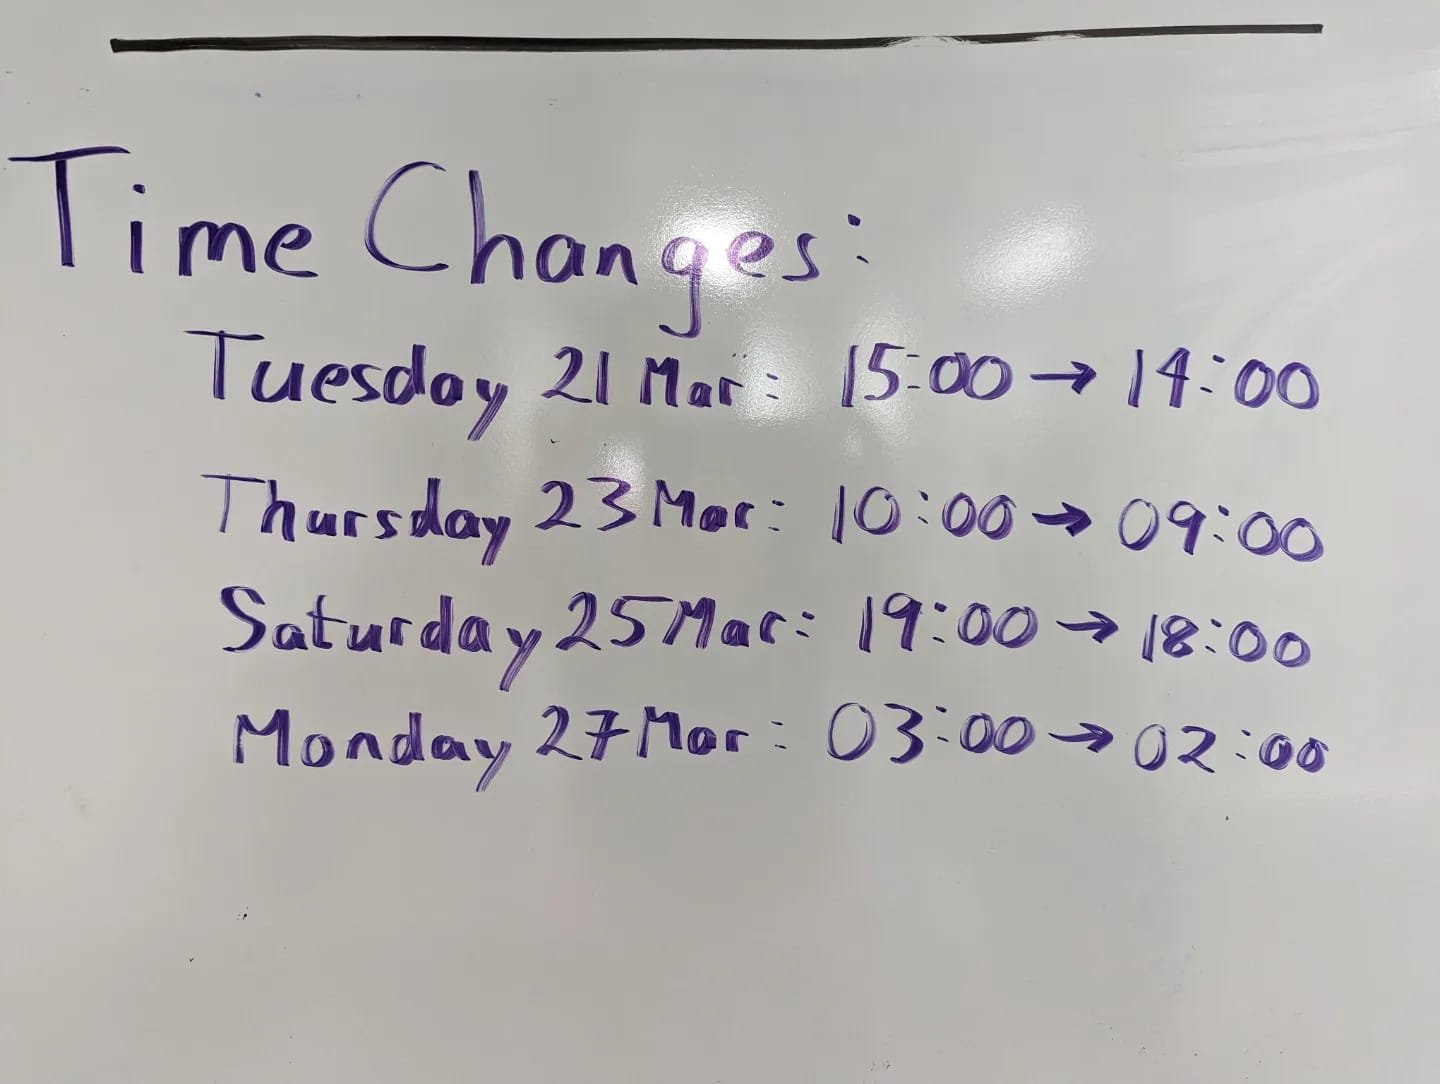 Time Changes:
Tuesday 21 Mar: 15:00 → 14:00
Thursday 23 Mar: 10:00 → 09:00
Saturday 25 Mar: 19:00 → 18:00
Monday 27 Mar: 03:00 → 02:00